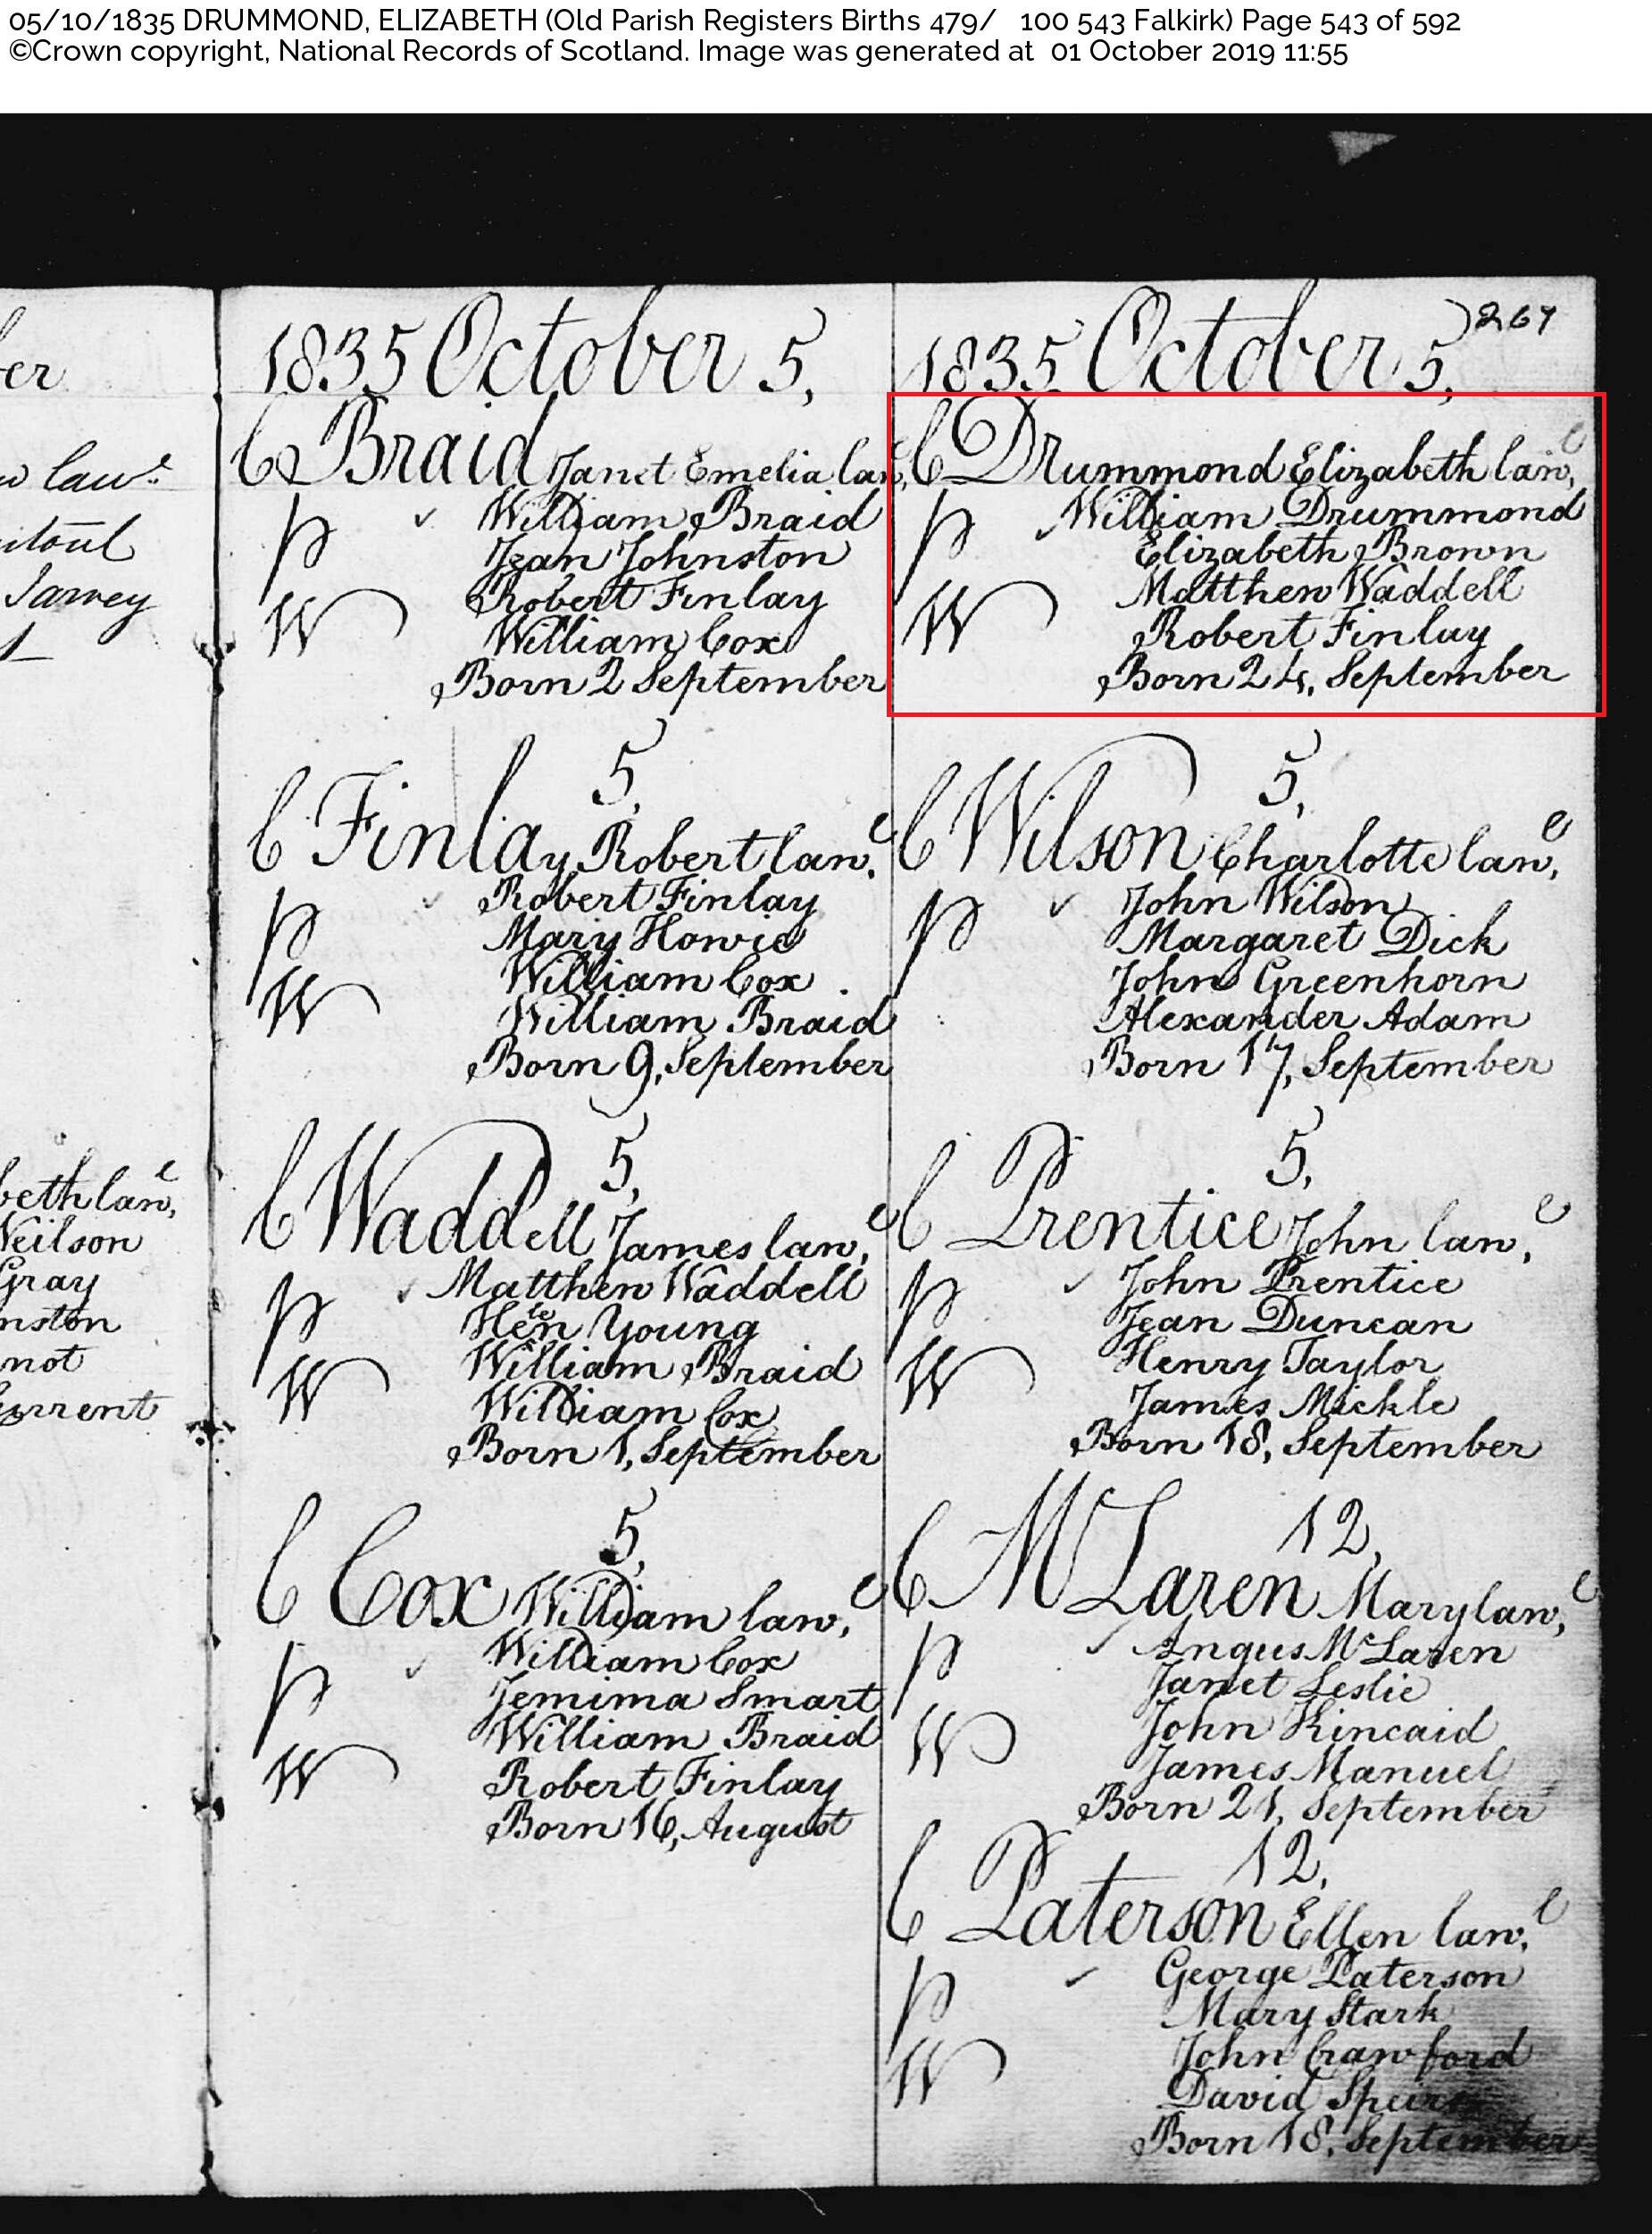 05/10/1835 DRUMMOND, ELIZABETH (Old Parish Registers Births 479/ 100 543 Falkirk) Page 543 of 592
©Crown copyright, National Records of Scotland. Image was generated at 01 October 2019 11:55
er
law.
Jarvey
beth law.e
Neilson
Gray
nston
not
Current
1835 October 5,
C Braid Janet Emelia law,
P William Braid
Jean Johnston
W Robert Finlay
William Cox
Born 2 September
5,
C Finlay Robert law.e
P Robert Finlay
Mary Howie
William Cox
W William Braid
Born 9, September
5,
C Waddell James law,e
P Matthew Waddell
Hente Young
W William Braid
William Cox
Born 1, September
5,
C Cox William law,e
P William Cox
Jemima Smart
William Braid
W Robert Finlay
Born 16, August
267
1835 October 5,
C Drummond Elizabeth law,e
P William Drummond
Elizabeth Brown
W Matthew Waddell
Robert Finlay
Born 24, September
5,
C Wilson Charlotte law,e
P John Wilson
Margaret Dick
John Greenhorn
Alexander Adam
Born 17, September
5,
C Prentice John law,e
P John Prentice
Jean Duncan
W Henry Taylor
James Mickle
Born 18, September
12,
C McLaren Mary law,e
P Angus McLaren
Janet Leslie
W John Kincaid
James Manuel
Born 21, September
12,
C Paterson Ellen law,e
P George Paterson
Mary Stark
W John Crawford
David Speirs
Born 18, September